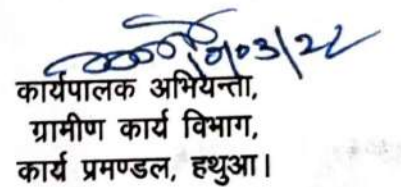 10/03/22
कार्यपालक अभियन्ता,
ग्रामीण कार्य विभाग,
कार्य प्रमण्डल, हथुआ।